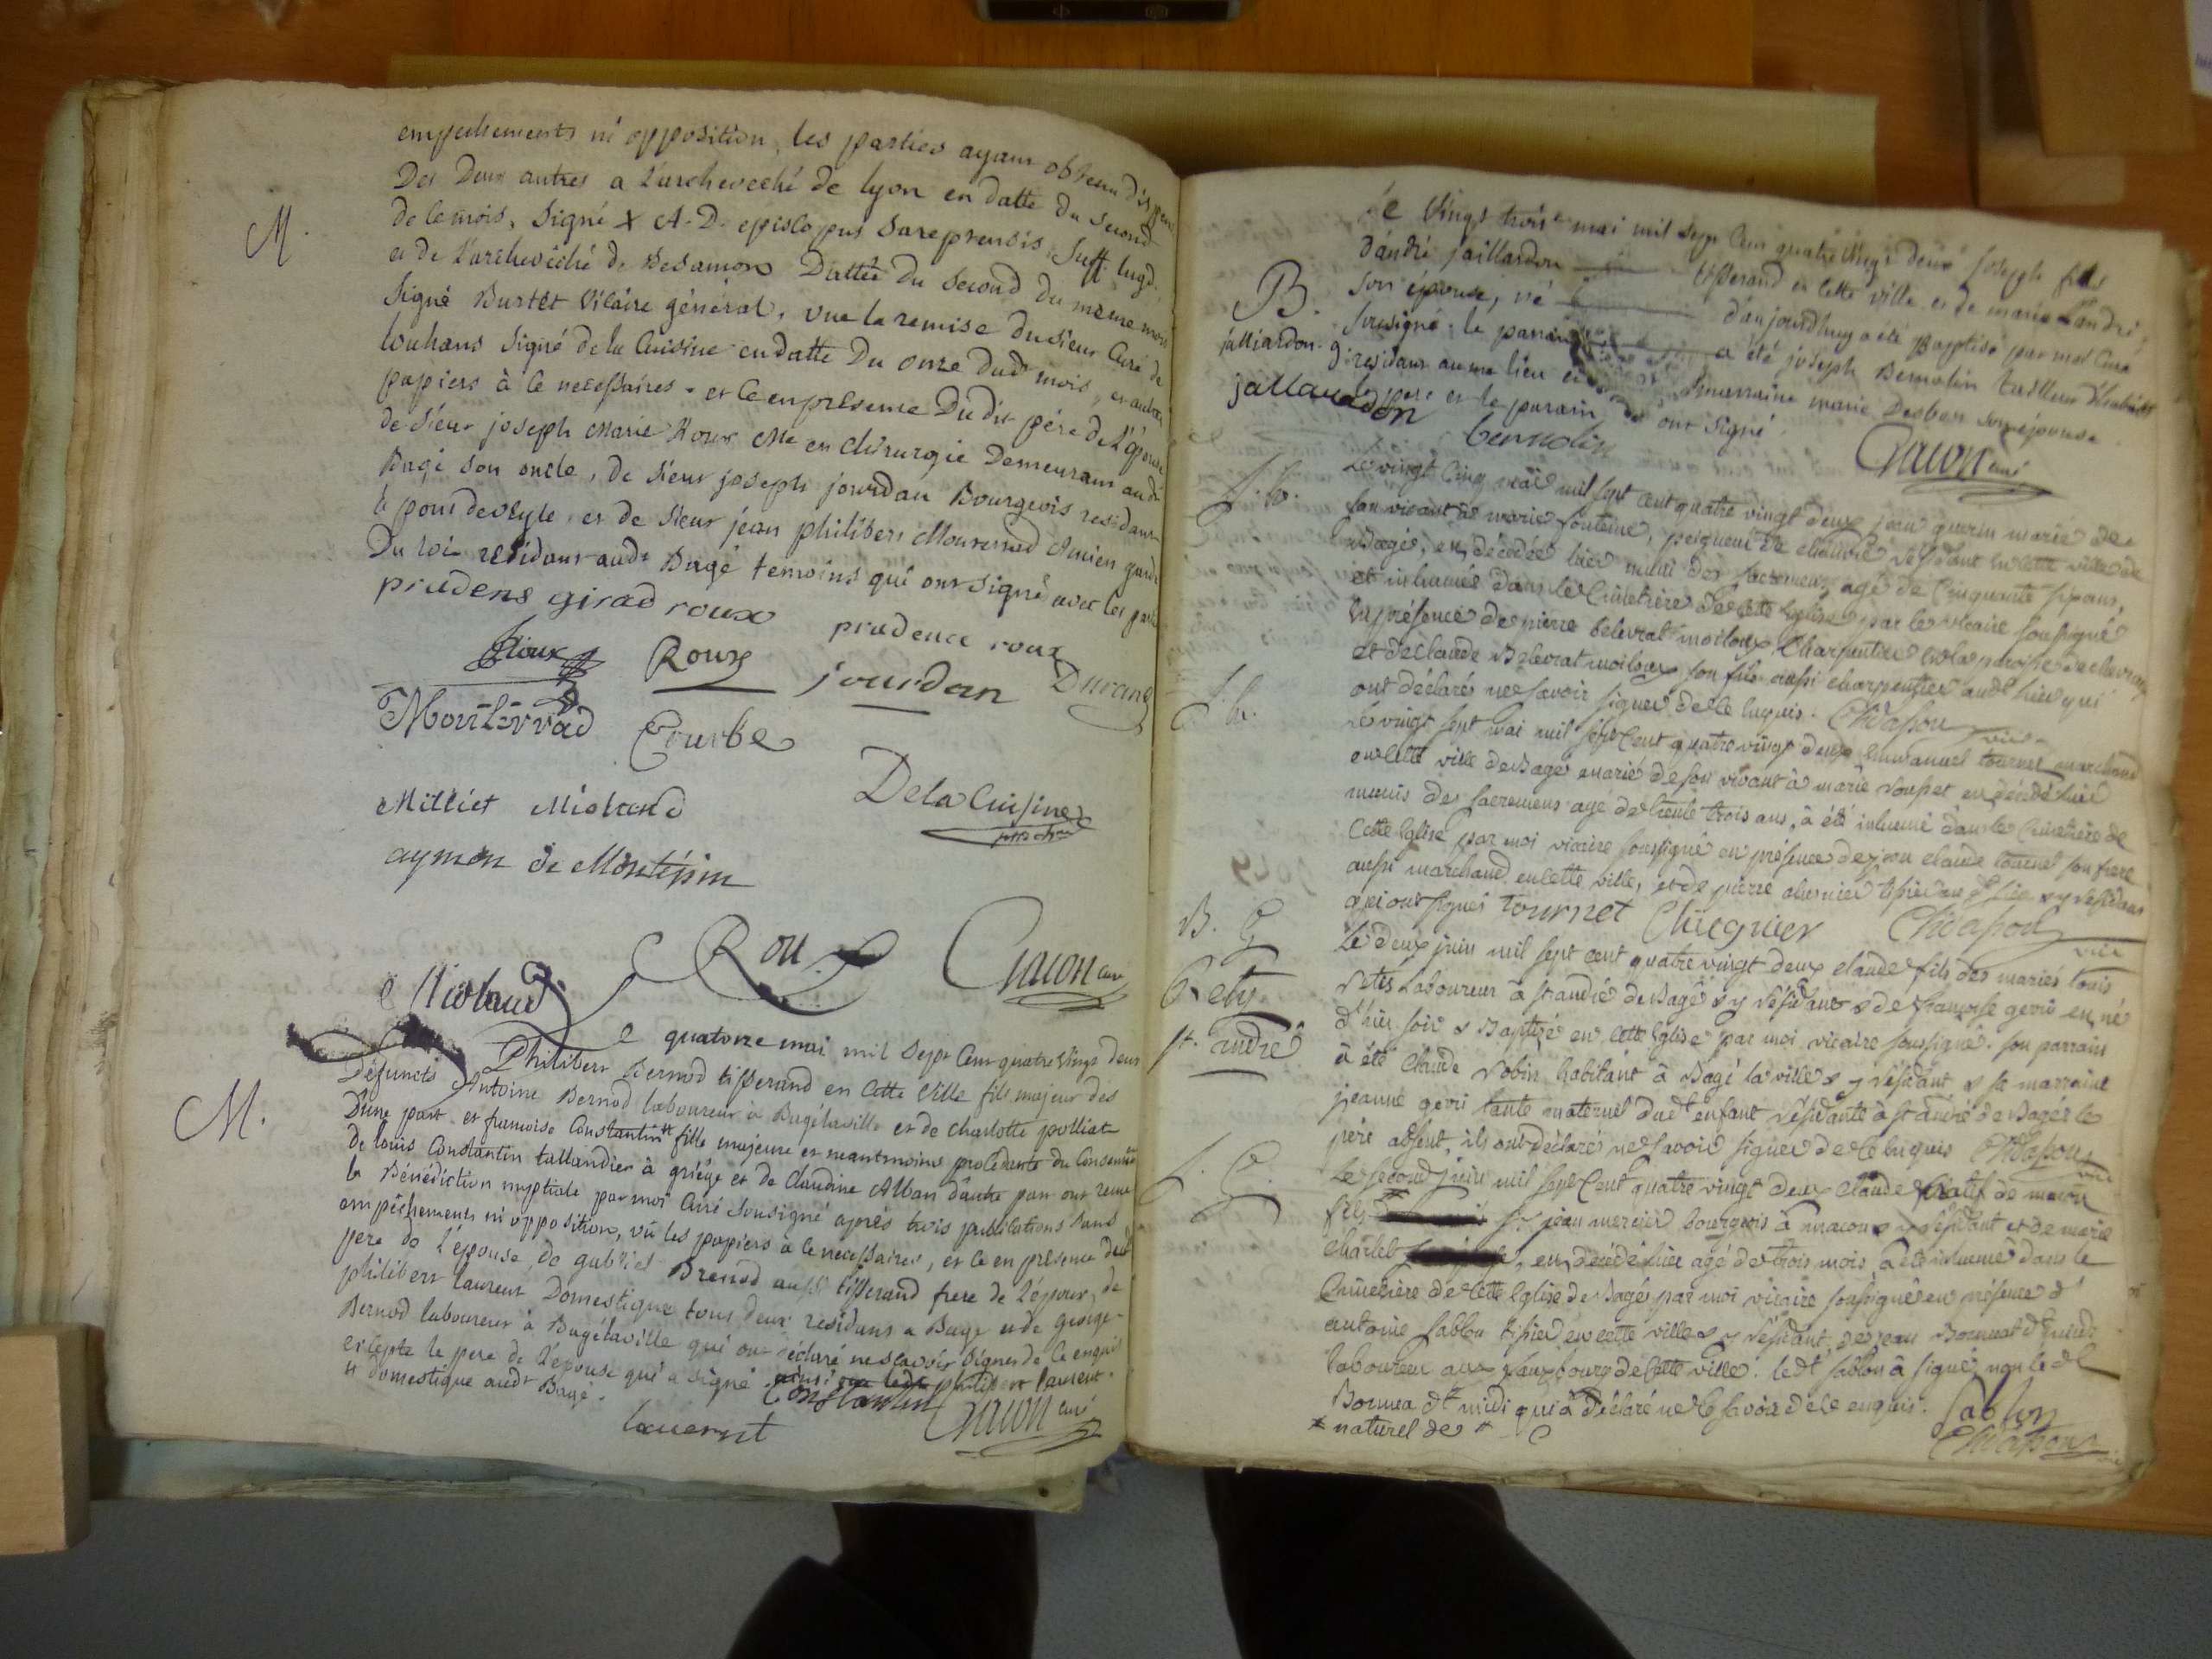 empechements ni opposition, les parties ayant obtenu dispense
Des Deux autres a L'archeveché de lyon en datte du second
M.
de ce mois, signé X A. D. episcopus Sareptensis Suff. lugd.
et de L'archevêché de Besamon Dattée du second du meme mois
Signé Burtet Vicaire général, vue la remise du sieur Curé de
louhans Signé de la Cuisine en datte Du onze dud mois, et autres
papiers à ce necessaires. et ce en presence Du dit pére de L'épouse
de sieur joseph Marie Roux Me en chirurgie Demeurant aud
Bagé son oncle, de sieur joseph jourdan Bourgeois residant
à pont devesle, et de sieur jean philibert Monterrad Ancien garde
Du roi residant audt Bagé temoins qui ont signé avec les parties
prudens girad roux prudence roux
Roux Roux jourdan Durand
Monterrad Courbe
Milliet Mioland De la Cuisine
aymon de Montépin
Miolaud Roux Chacon curé
e quatorze mai mil Sept Cent quatre vingt deux
M.
Philibert Bernod tisserand en Cette Ville fils majeur des
Defuncts Antoine Bernod laboureur à Bagélaville et de Charlotte polliat
D'une part et francoise Constantin fille majeure et neantmoins procédante du Consentem
de louis Constantin taillandier à griége et de Claudine Alban d'autre part ont recu
la Bénédiction nuptiale par moi Curé Sousigné après trois publications sans
empêchements ni opposition, vû les papiers a ce necessaires, et ce en presence dud
pere de L'épouse, de gabriel Brenod aussi tisserand frere de L'époux, de
philibert laurent Domestique tous deux residans a Bagé et de george
Bernod laboureur à Bagélaville qui ont déclaré ne scavoir signer de ce enquis
excepté le pere de L'epouse qui a signé philibert laurent.
domestique audt Bagé. Constantin Chacon curé
lauernt
Le Vingt trois mai mil sept Cent quatre vingt deux joseph fils
d'andré jaillardon tisserand en Cette ville et de marie Landri,
B.
Son épouse, né d'aujourdhuy a été Baptisé par moi Curé
jalliardon
sousigné. le parain a été joseph Bernolin tailleur d'habits
residant au me lieu et marraine marie Desbor son épouse.
jallauedon pere et le parain ont Signé.
bernolin Chacon curé
Le vingt Cinq mai mil sept cent quatre vingt deux jean guerin marié de
S. h.
son vivant à marie fonteine, peigneur de chanvre résidant en cette ville de
Bagé, est décédé hier muni des sacremens agé de Cinquante six ans,
et inhumé dans le Cimetière de cette Eglise par le vicaire soussigné
en présence de pierre belevrat moiloux, Charpentier en la paroisse de
et de Claude Belevrat moiloux son fils aussi charpentier audt lieu qui
ont déclarés ne savoir signer de ce enquis. Chdapou vic.
S. h.
Le vingt sept mai mil sept Cent quatre vingt deux Emmanuel tournet marchand
en cette ville de Bagé marié de son vivant à marie est décédé hier
munis des sacremens agé de trente trois ans, à été inhumé dans le Cimetière de
Cette Eglise par moi vicaire soussigné en présence de jean claude tournet son frere
aussi marchand en cette ville, et de pierre y résidans
qui ont signés tournet Chuegnier Chdapou vic
B. G
Le deux juin mil sept cent quatre vingt deux claude fils des mariés louis
Rety
Retis Laboureur à st andré de Bagé & y résidant & de françoise gevri est né
st. andré
d'hier soir & Baptizé en cette Eglise par moi vicaire soussigné. son parrain
à été Claude robin habitant à Bagé la ville & y résidant & sa marraine
jeanne gevri tante maternel dudt enfant résidante à st andré de Bagé le
père absent, ils ont déclaré ne savoir signer de ce enquis Chdapou vic
S. G.
Le second juin mil sept Cent quatre vingt deux claude natif de macon
fils jean mercier bourgeois à macon y résidant et de marie
charlet, est décédé hier agé de trois mois, à été inhumé dans le
Cimetière de cette Eglise de Bagé par moi vicaire soussigné en présence d'
antoine sablon en cette ville & y résidant, de jean
laboureur aux fauxbourg de cette ville. ledt sablon à signé non le dt
qui à déclaré ne le savoir de ce enquis. Sablon
* naturel de * Chdapou vic